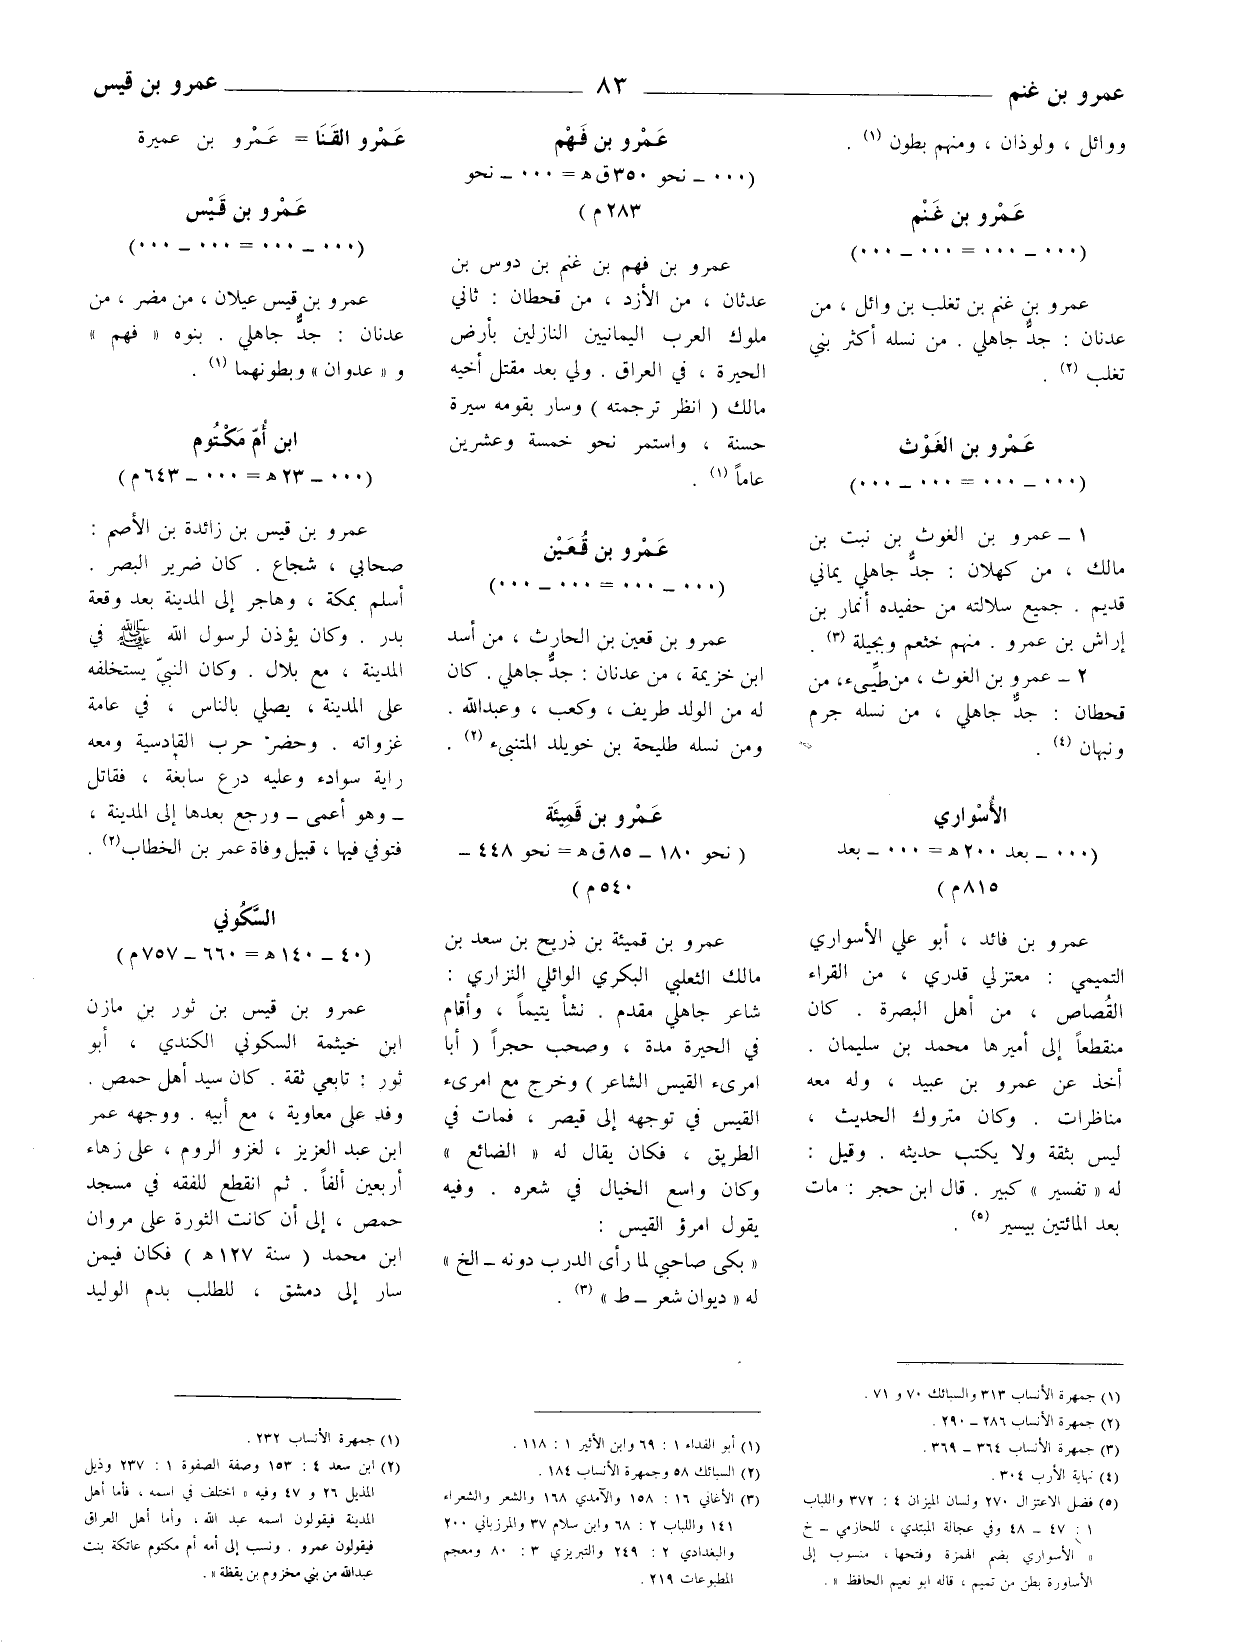 عمرو بن غنم ٨٣ عمرو بن قيس
ووائل ، ولوذان ، ومنهم بطون (١) .
عَمْرو بن غَنْم
(٠٠٠ ـ ٠٠٠ = ٠٠٠ ـ ٠٠٠)
عمرو بن غنم بن تغلب بن وائل ، من
عدنان : جدٌّ جاهلي . من نسله أكثر بني
تغلب (٢) .
عَمْرو بن الغَوْث
(٠٠٠ ـ ٠٠٠ = ٠٠٠ ـ ٠٠٠)
١ ـ عمرو بن الغوث بن نبت بن
مالك ، من كهلان : جدٌّ جاهلي يماني
قديم . جميع سلالته من حفيده أنمار بن
إراش بن عمرو . منهم خثعم وبجيلة (٣) .
٢ ـ عمرو بن الغوث ، من طيِّىء، من
قحطان : جدٌّ جاهلي ، من نسله جرم
ونبهان (٤) .
الأُسْواري
(٠٠٠ ـ بعد ٢٠٠ ه‍ = ٠٠٠ ـ بعد
٨١٥ م)
عمرو بن فائد ، أبو علي الأسواري
التميمي : معتزلي قدري ، من القراء
القُصاص ، من أهل البصرة . كان
منقطعاً إلى أميرها محمد بن سليمان .
أخذ عن عمرو بن عبيد ، وله معه
مناظرات . وكان متروك الحديث ،
ليس بثقة ولا يكتب حديثه . وقيل :
له « تفسير » كبير . قال ابن حجر : مات
بعد المائتين بيسير (٥) .
(١) جمهرة الأنساب ٣١٣ والسبائك ٧٠ و ٧١ .
(٢) جمهرة الأنساب ٢٨٦ ـ ٢٩٠ .
(٣) جمهرة الأنساب ٣٦٤ ـ ٣٦٩ .
(٤) نهاية الأرب ٣٠٤ .
(٥) فضل الاعتزال ٢٧٠ ولسان الميزان ٤ : ٣٧٢ واللباب
١ : ٤٧ ـ ٤٨ وفي عجالة المبتدي ، للحازمي ـ خ
« الأسواري بضم الهمزة وفتحها ، منسوب إلى
الأساورة بطن من تميم ، قاله ابو نعيم الحافظ » .
عَمْرو بن فَهْم
(٠٠٠ ـ نحو ٣٥٠ ق ه‍ = ٠٠٠ ـ نحو
٢٨٣ م)
عمرو بن فهم بن غنم بن دوس بن
عدثان ، من الأزد ، من قحطان : ثاني
ملوك العرب اليمانيين النازلين بأرض
الحيرة ، في العراق . ولي بعد مقتل أخيه
مالك ( انظر ترجمته ) وسار بقومه سيرة
حسنة ، واستمر نحو خمسة وعشرين
عاماً (١) .
عَمْرو بن قُعَيْن
(٠٠٠ ـ ٠٠٠ = ٠٠٠ ـ ٠٠٠)
عمرو بن قعين بن الحارث ، من أسد
ابن خزيمة ، من عدنان : جدٌّ جاهلي . كان
له من الولد طريف ، وكعب ، وعبدالله .
ومن نسله طليحة بن خويلد المتنبىء (٢) .
عَمْرو بن قَمِيئَة
( نحو ١٨٠ ـ ٨٥ ق ه‍ = نحو ٤٤٨ ـ
٥٤٠ م)
عمرو بن قميئة بن ذريح بن سعد بن
مالك الثعلبي البكري الوائلي النزاري :
شاعر جاهلي مقدم . نشأ يتيماً ، وأقام
في الحيرة مدة ، وصحب حجراً ( أبا
امرىء القيس الشاعر ) وخرج مع امرىء
القيس في توجهه إلى قيصر ، فمات في
الطريق ، فكان يقال له « الضائع »
وكان واسع الخيال في شعره . وفيه
يقول امرؤ القيس :
« بكى صاحبي لما رأى الدرب دونه ـ الخ »
له « ديوان شعر ـ ط » (٣) .
(١) أبو الفداء ١ : ٦٩ وابن الأثير ١ : ١١٨ .
(٢) السبائك ٥٨ وجمهرة الأنساب ١٨٤ .
(٣) الأغاني ١٦ : ١٥٨ والآمدي ١٦٨ والشعر والشعراء
١٤١ واللباب ٢ : ٦٨ وابن سلام ٣٧ والمرزباني ٢٠٠
والبغدادي ٢ : ٢٤٩ والتبريزي ٣ : ٨٠ ومعجم
المطبوعات ٢١٩ .
عَمْرو القَنَا = عَمْرو بن عميرة
عَمْرو بن قَيْس
(٠٠٠ ـ ٠٠٠ = ٠٠٠ ـ ٠٠٠)
عمرو بن قيس عيلان ، من مضر ، من
عدنان : جدٌّ جاهلي . بنوه « فهم »
و « عدوان » وبطونهما (١) .
ابن أُمّ مَكْتُوم
(٠٠٠ ـ ٢٣ ه‍ = ٠٠٠ ـ ٦٤٣ م)
عمرو بن قيس بن زائدة بن الأصم :
صحابي ، شجاع . كان ضرير البصر .
أسلم بمكة ، وهاجر إلى المدينة بعد وقعة
بدر . وكان يؤذن لرسول الله ﷺ في
المدينة ، مع بلال . وكان النبيّ يستخلفه
على المدينة ، يصلي بالناس ، في عامة
غزواته . وحضر حرب القادسية ومعه
راية سوادء وعليه درع سابغة ، فقاتل
ـ وهو أعمى ـ ورجع بعدها إلى المدينة ،
فتوفي فيها ، قبيل وفاة عمر بن الخطاب (٢) .
السَّكُوني
(٤٠ ـ ١٤٠ ه‍ = ٦٦٠ ـ ٧٥٧ م)
عمرو بن قيس بن ثور بن مازن
ابن خيثمة السكوني الكندي ، أبو
ثور : تابعي ثقة . كان سيد أهل حمص .
وفد على معاوية ، مع أبيه . ووجهه عمر
ابن عبد العزيز ، لغزو الروم ، على زهاء
أربعين ألفاً . ثم انقطع للفقه في مسجد
حمص ، إلى أن كانت الثورة على مروان
ابن محمد ( سنة ١٢٧ ه‍ ) فكان فيمن
سار إلى دمشق ، للطلب بدم الوليد
(١) جمهرة الأنساب ٢٣٢ .
(٢) ابن سعد ٤ : ١٥٣ وصفة الصفوة ١ : ٢٣٧ وذيل
المذيل ٢٦ و ٤٧ وفيه « اختلف في اسمه ، فأما أهل
المدينة فيقولون اسمه عبد الله ، وأما أهل العراق
فيقولون عمرو . ونسب إلى أمه أم مكتوم عاتكة بنت
عبدالله من بني مخزوم بن يقظة » .